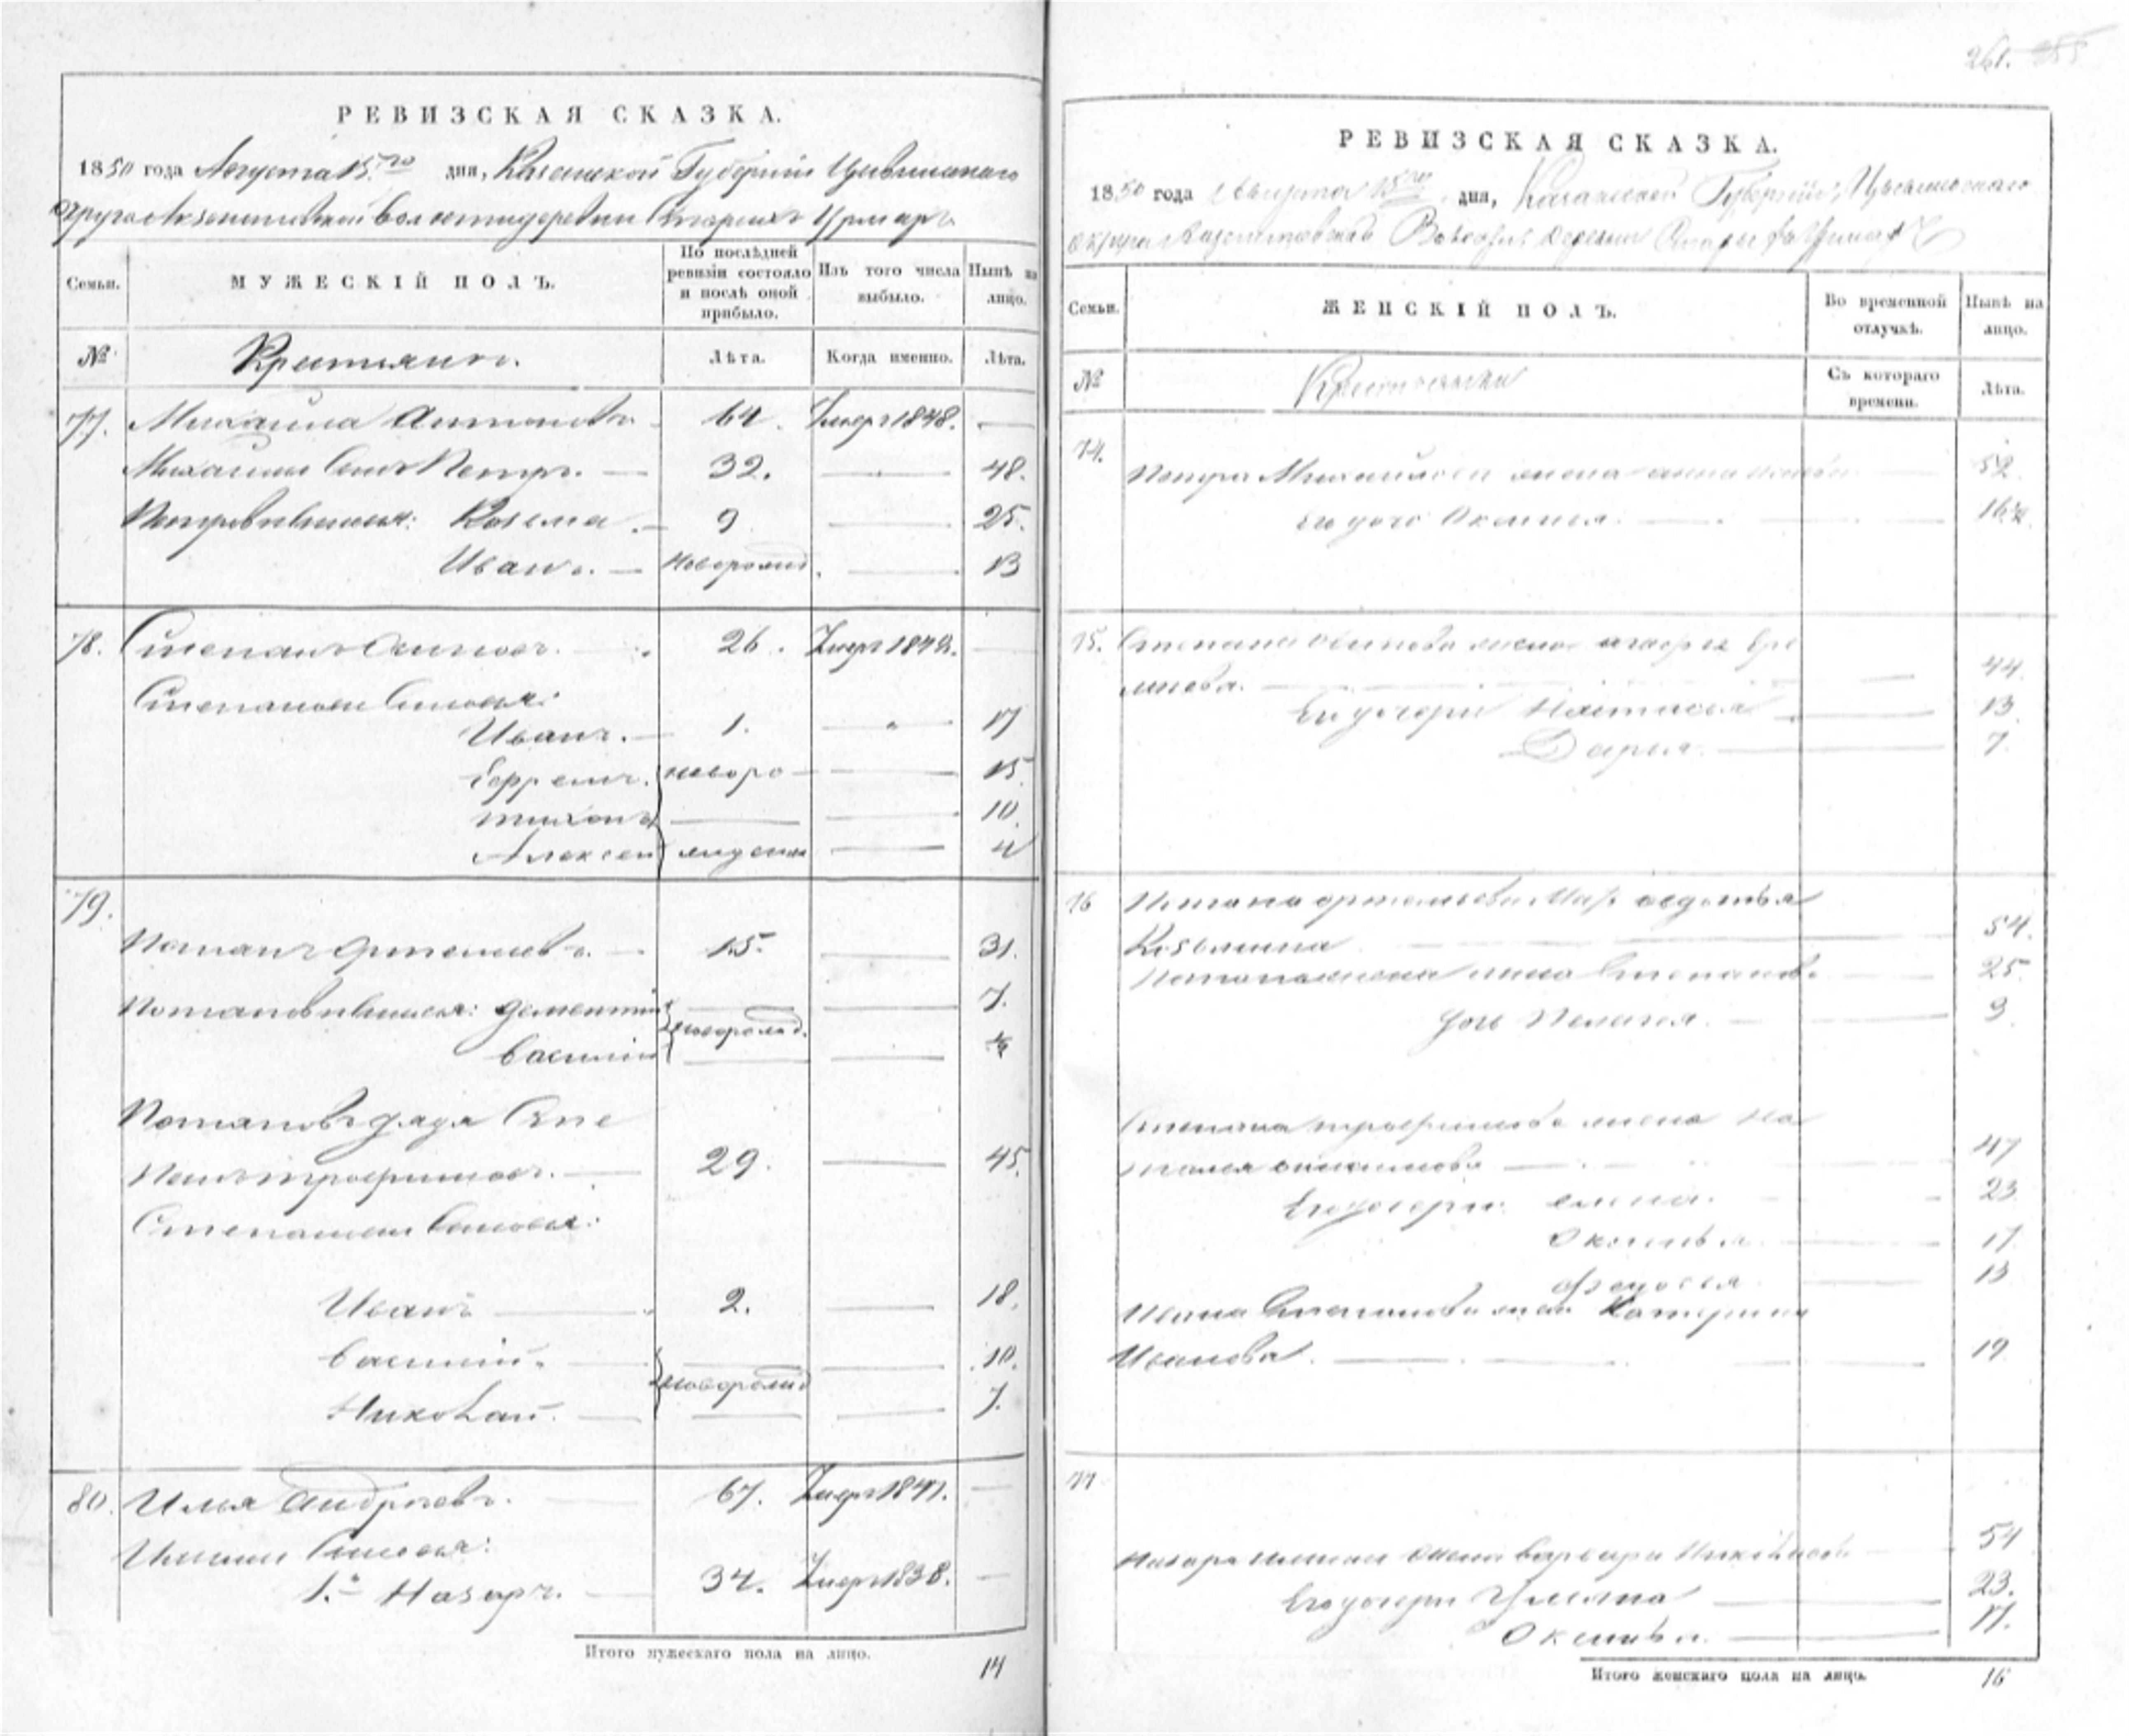 261. 255
РЕВИЗСКАЯ СКАЗКА.
1850 года Августа 15го дня, Казанской Губерніи Цивильскаго
Округа волости деревни Старыхъ Урмаръ
Семьи. МУЖЕСКІЙ ПОЛЪ. По послѣдней ревизіи состояло и послѣ оной прибыло. Изъ того числа выбыло. Нынѣ на лицо.
№ Крестьянъ. Лѣта. Когда именно. Лѣта.
77. Михайла Антоновъ 64. Умеръ 1848. —
Михайлы Сынъ Петръ. — 32. — 48.
Петровы Козьма. — 9 — 25.
Иванъ. — новорожд. — 13
78. Степанъ Осиповъ. 26. Умеръ 1848. —
Степановы Сыновья:
Иванъ. — 1. — 17
Ефремъ. новоро — 15.
Тихонъ — — 10.
Алексей жденны — 4
79.
Потапъ Артемьевъ. — 15. — 31.
Потаповы сыновья: Дементій — — 7.
новорожд.
Василій — — ½
Потаповъ дядя Сте
панъ Трофимовъ. — 29. — 45.
Степановы Сыновья:
Иванъ — 2. — 18.
Василій. — — — 10.
новорожд
Николай. — — — 7.
80. Илья Андреевъ. 67. Умеръ 1841. —
Ильины Сыновья:
1.й Назаръ. — 34. Умеръ 1838. —
Итого мужескаго пола на лицо. 14
РЕВИЗСКАЯ СКАЗКА.
1850 года Августа 15го дня, Казанской Губерніи, Цивильскаго
Округа Волости деревни Старыхъ Урмаръ
Семьи. ЖЕНСКІЙ ПОЛЪ. Во временной отлучкѣ. Нынѣ на лицо.
№ Крестьянки Съ котораго времени. Лѣта.
74. Петра Михайлова жена Анна — 52.
Его дочь Оксинья. — — 16½
75. Степана Осипова жена Агафья Ефи
мова. — — 44.
Его дочери Настасья — 13.
Дарья. — 7.
76 Потапа Артемьева Мать Авдотья
Козьмина — 54.
Потапа жена Анна Степанова — 25.
дочь Пелагея. — 9.
Степана Трофимова жена На
талья — 47
Его дочери: Елена. — 23
Оксинья — 17.
Федосья — 13
Ивана Степанова жена Катерина
Иванова. — 19
77
Назара Ильина жена Варвара Николаева — 54
Его дочери Ульяна — 23.
Оксинья. — 17.
Итого женскаго пола на лицо. 16